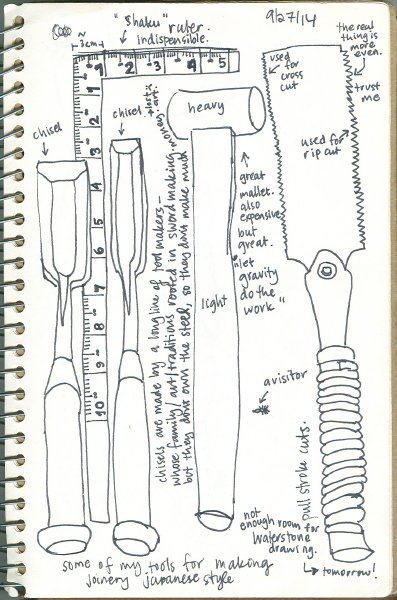 9/27/14
"Shaku" ruler.
indispensible.
~3cm
1 2 3 4 5
1
2
3
4
5
6
7
8
9
10
chisel
chisel
chisels are made by a long line of tool makers-
whose family/art/traditions rooted in sword making.
but they don't own the steel, so they don't make much
money
heavy
light
great
mallet.
also
expensive
but
great.
"let
gravity
do the
work"
a visitor
used
for
cross
cut
the real
thing is
more
even.
trust
me
used for
rip cut
pull stroke cuts.
not
enough room for
waterstone
drawing.
tomorrow!
some of my tools for making
joinery japanese style